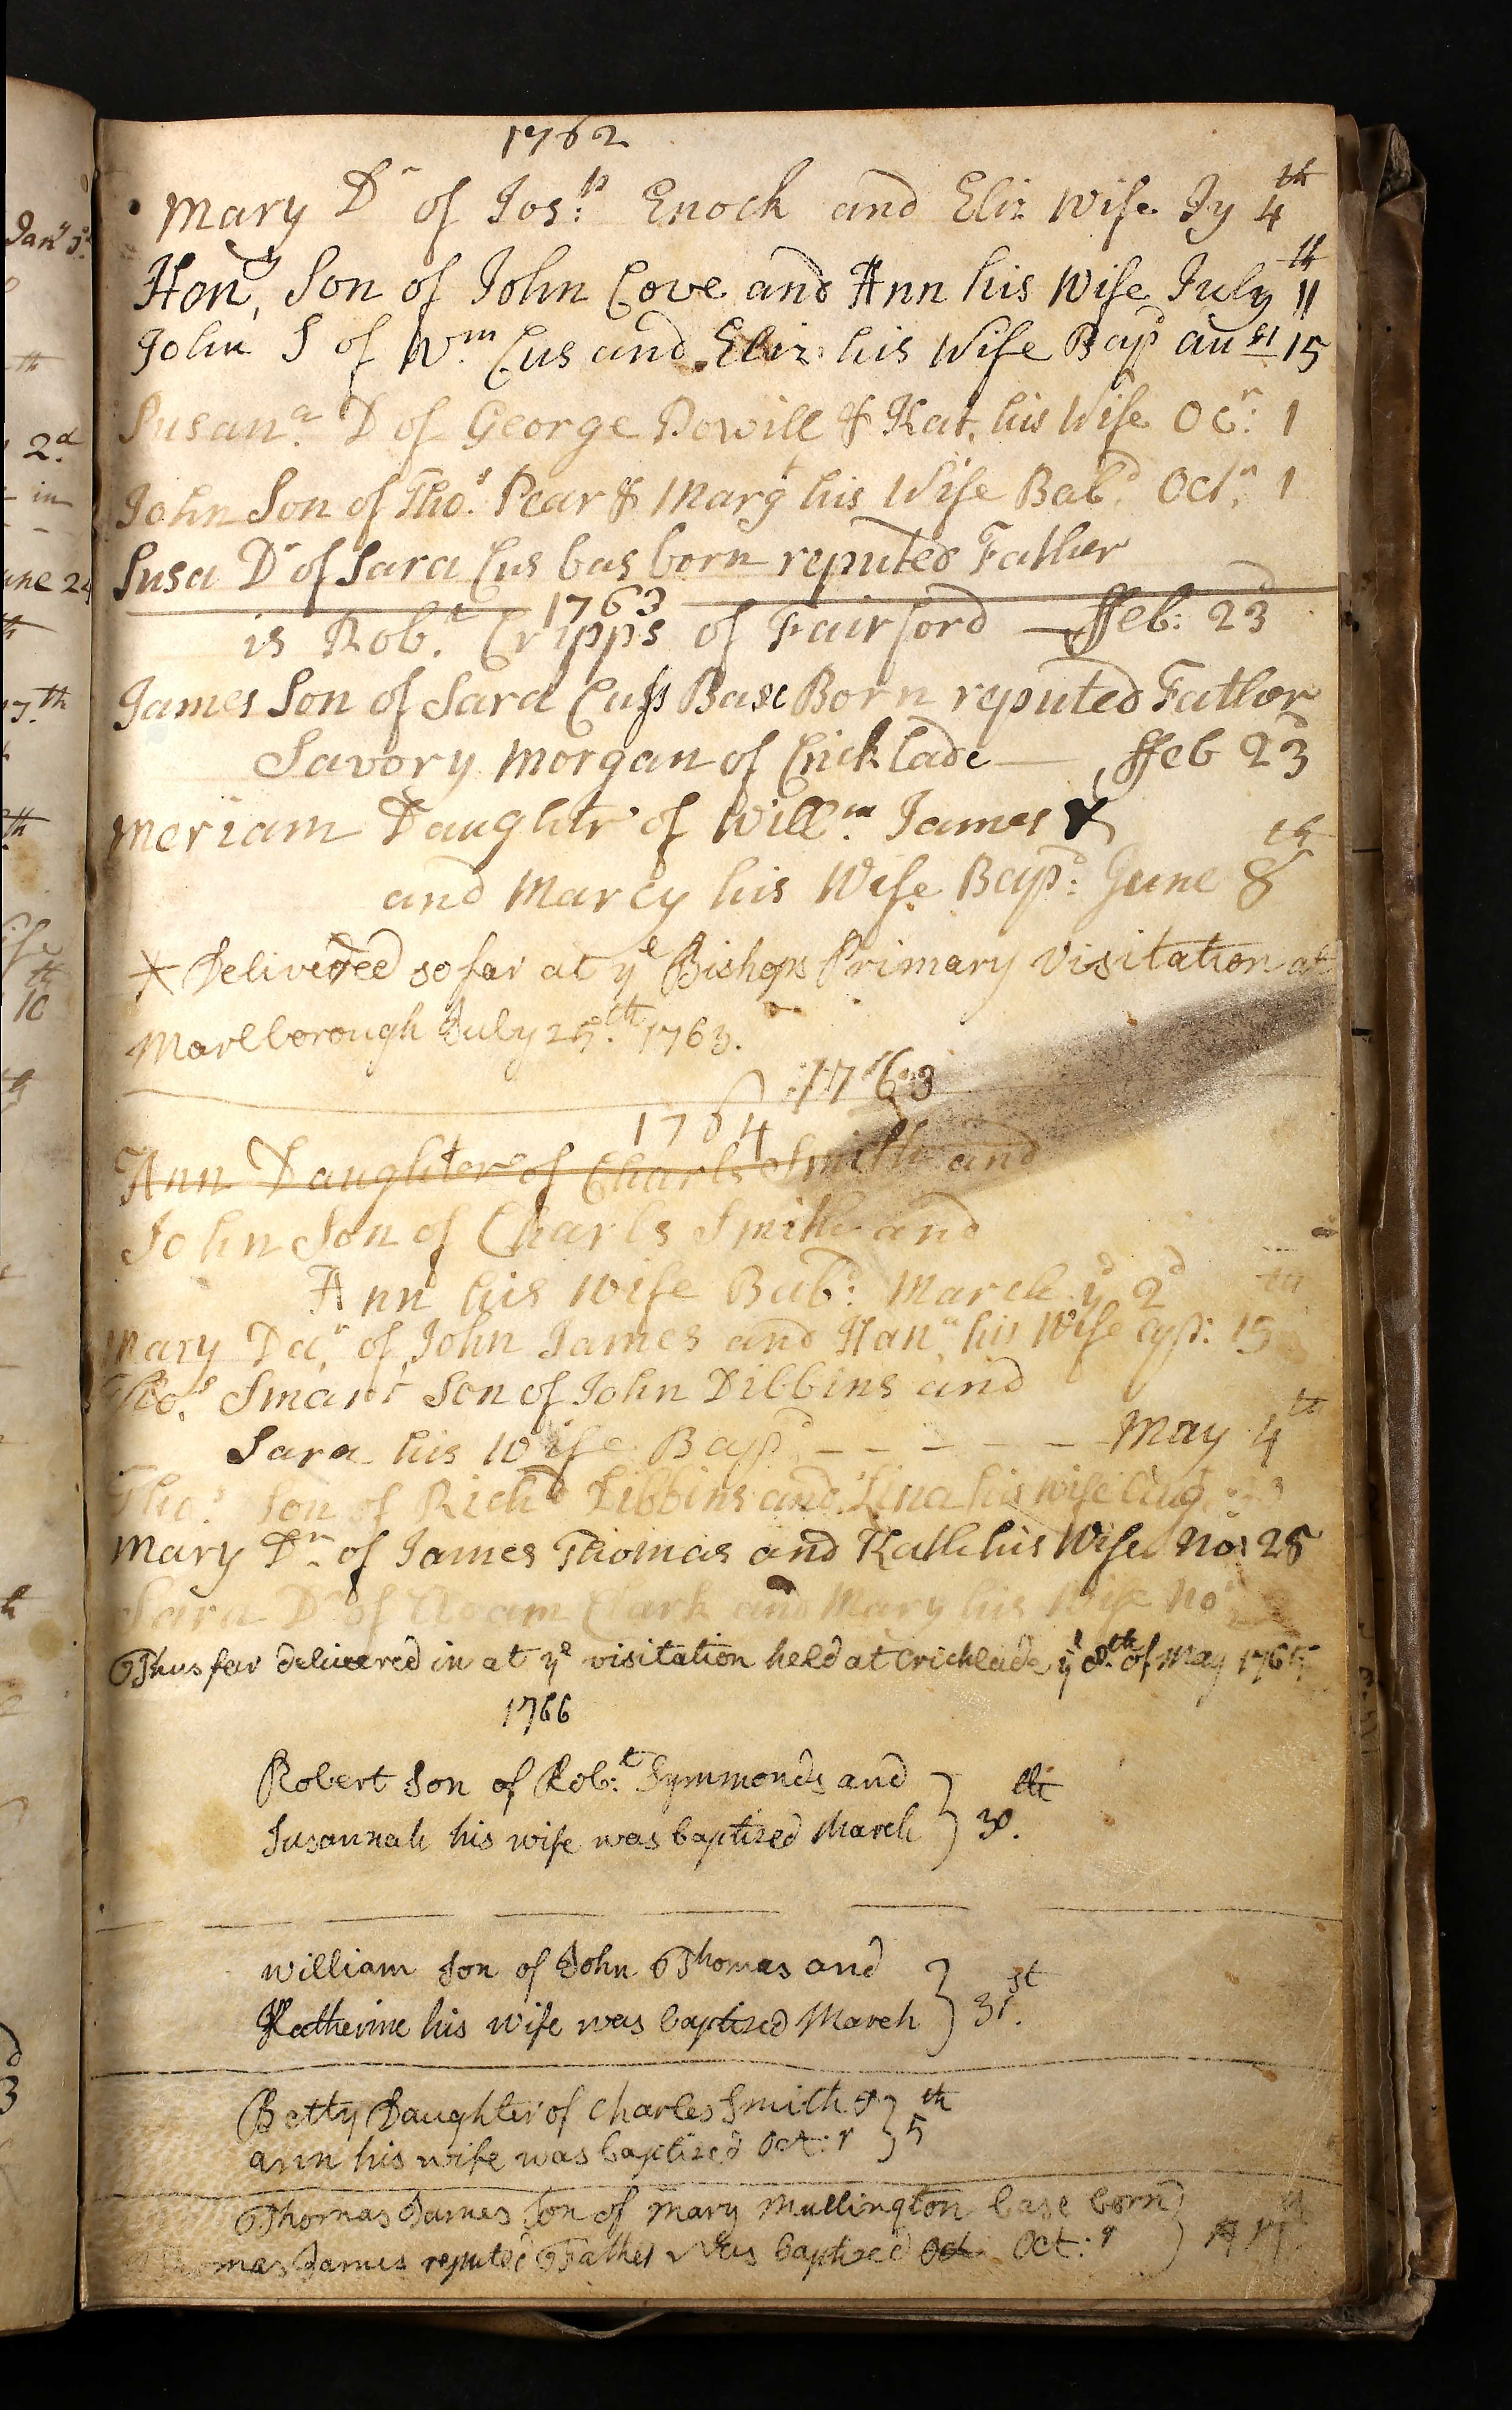 1762
Mary Dr of Jos:ph Enock and Eliz Wife Jy 4th
Hony, Son of John Cove and Ann his Wife July 11th
John S of Wm Cus and Eliz his Wife Bapd au st 15
Susan:a D of George Dowill & Kat, his Wife Ocr: 1
John Son of Tho:s Pear & Margt his Wife Babd Octr. 1
Susa Dr of Sara Cus bas born reputed Father
1763
is Rob.t Cripps of Fairford — ffeb: 23d
James Son of Sara Cuss Base Born reputed Father
Savory Morgan of Crick lade — ffeb 23d
Meriam Daughtr of Will:m James &
and Marcy his Wife Bapd: June 8th
* Delivered so far at ye Bishops Primary Visitation at
Marlborough July 25.th 1763.
1763
1764
Ann Daughter of Charls Smith and
John Son of Charls Smith and
Ann his Wife Babd: March yd 2d
Mary Dar. of John James and Han.a his Wife ap: 15th
Tho.s Smart Son of John Dibbins and
Sara his Wife Bapd - - - - - May 4th
Tho.s Son of Richd Dibbins and Lina his wife Aug.
Mary Dr of James Thomas and Kath his Wife No: 28
Sara Dr of Clark and Mary his Wife No
Thus far delivered in at ye visitation held at Cricklade ye 8.th of May 1765
1766
Robert Son of Rob:t Symmonds and
Susannah his wife was baptized March } 30.th
William Son of John Thomas and
Katherine his wife was baptized March } 31.st
Betty Daughter of Charles Smith &
ann his wife was baptized Oct:r } 5th
Thomas James Son of Mary Mullington base born
Thomas James reputed Father was baptized Oct Oct:r }